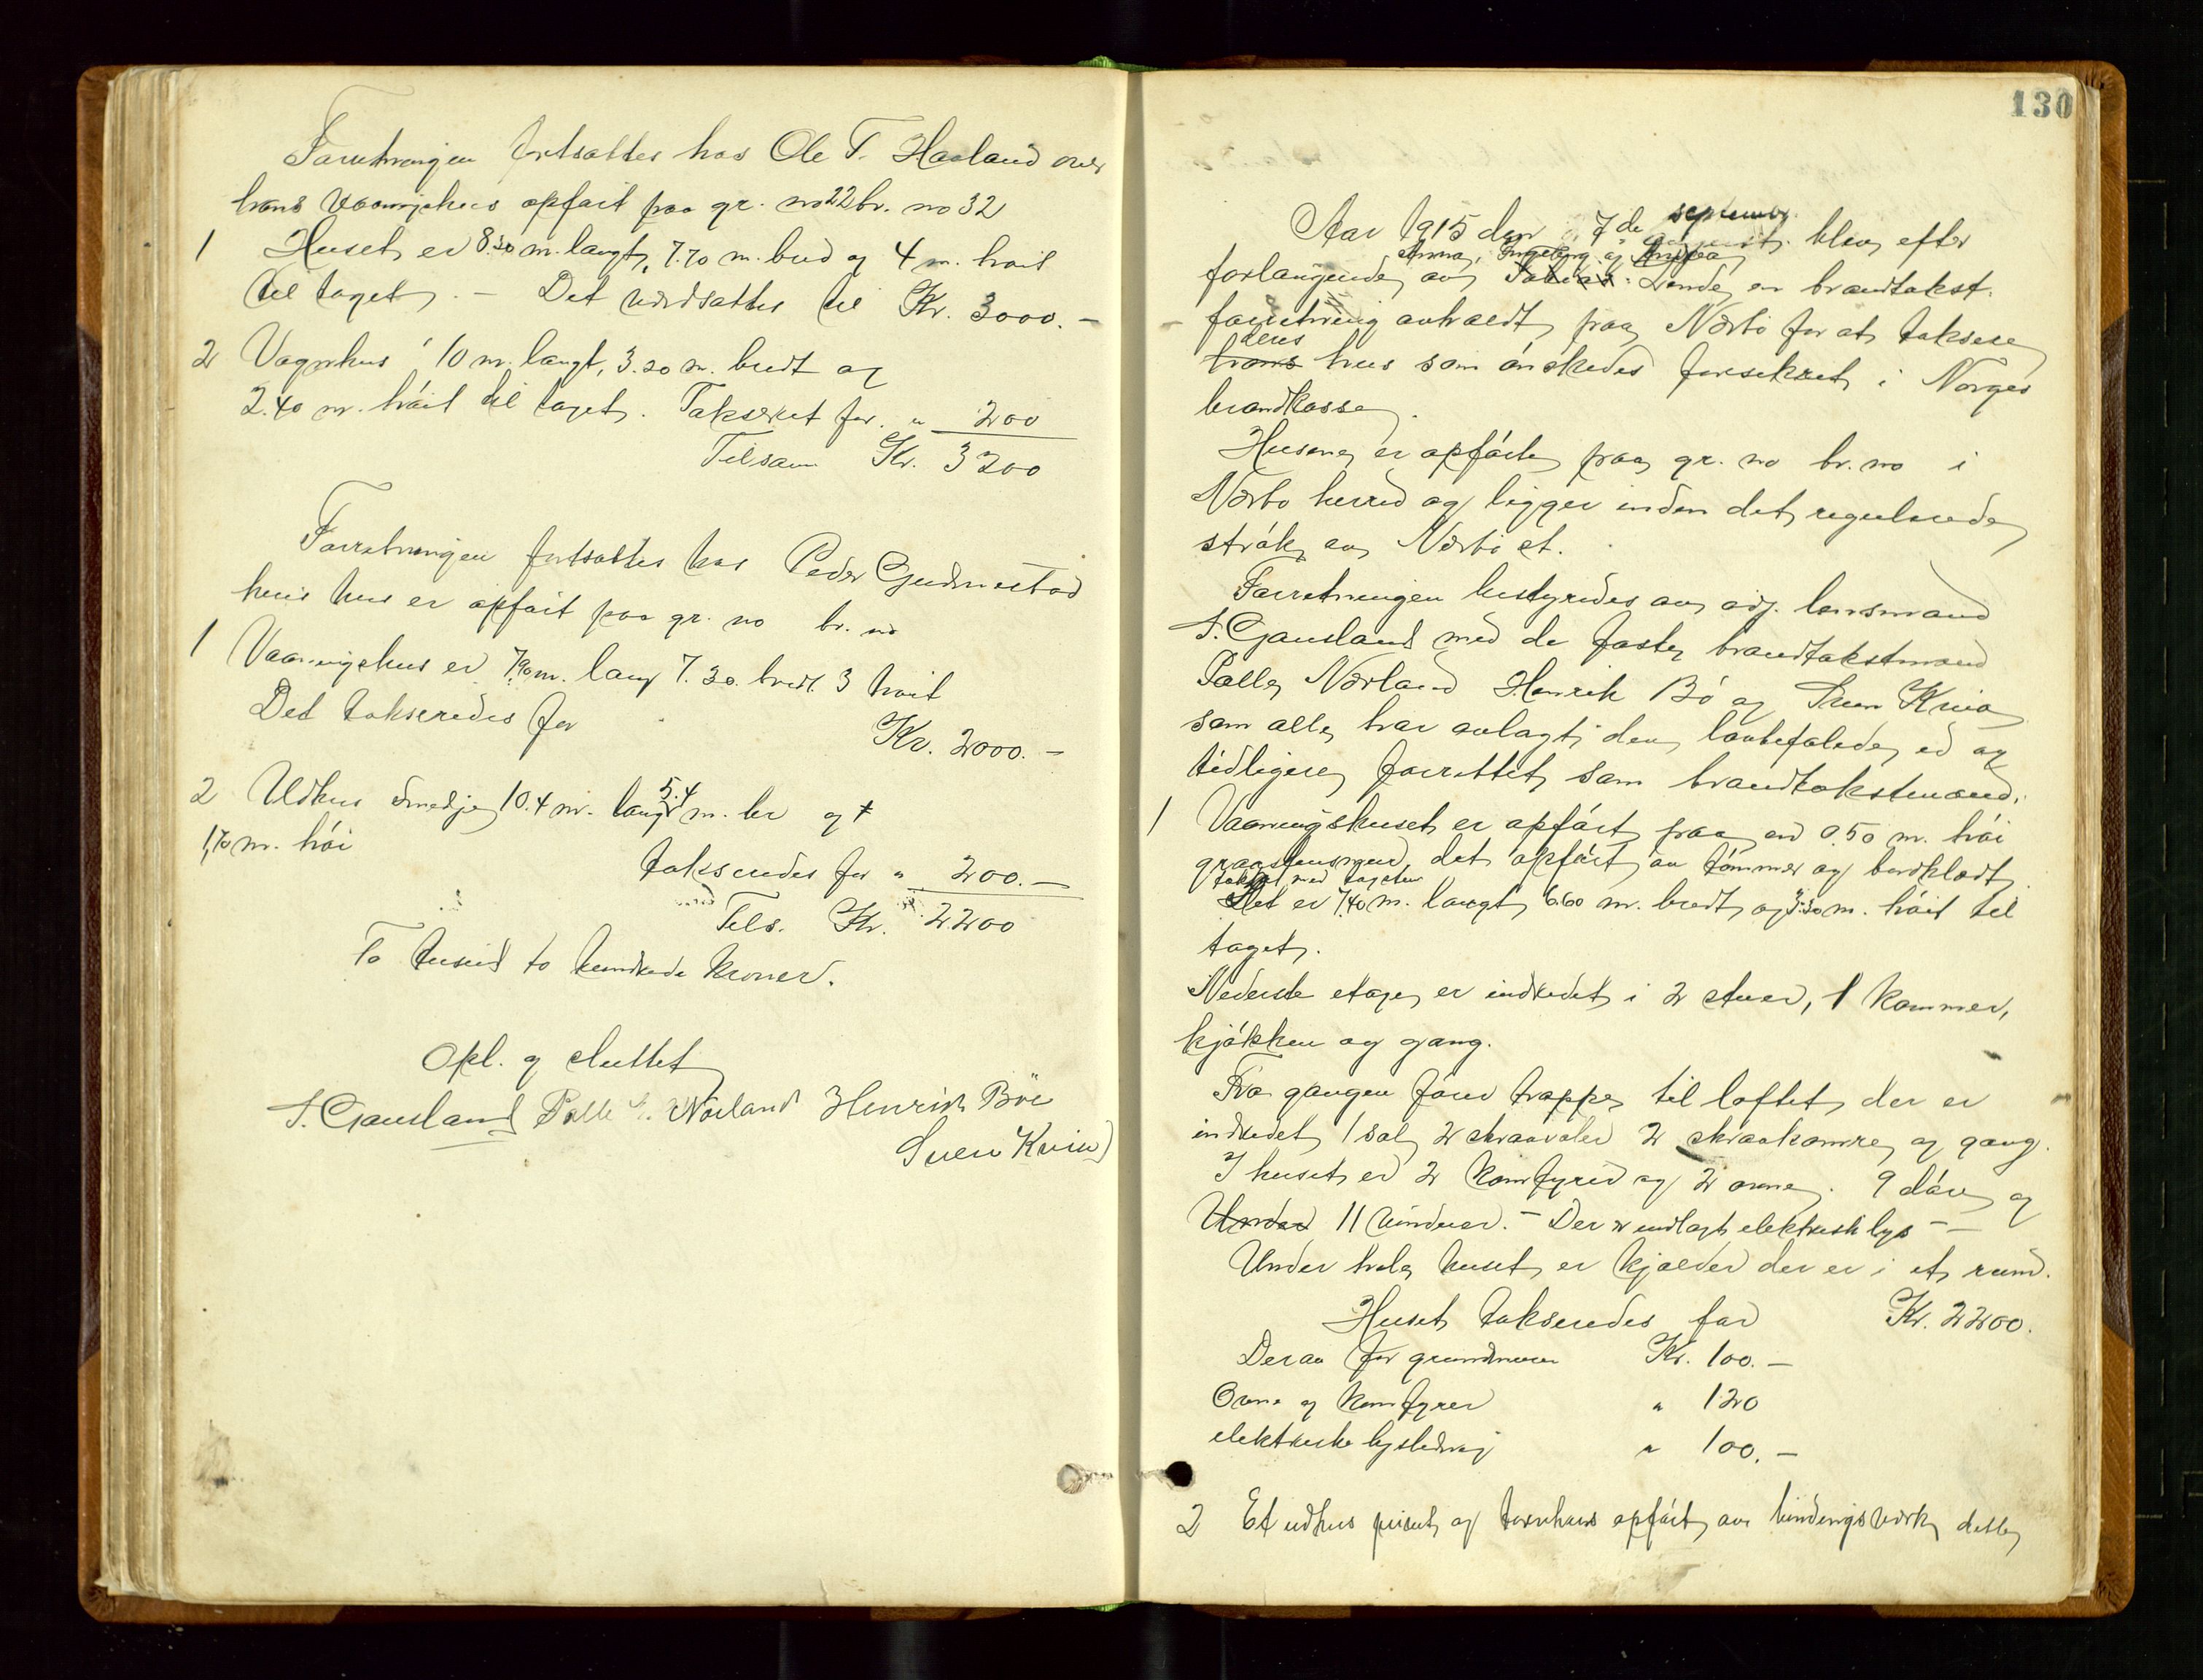 Forretningen fortsattes hos Ole T. Haaland over
hans vaaningshus opført paa gr. no 22 br. no 32
1 Huset er 8.30 m. langt, 7.70 m. bred og 4 m. høit
til taget. – Det værdsattes til Kr. 3000. –
2 Vognhus 10 m. langt, 3.20 m. bredt og
2.40 m. høit til taget. Taksert for " 200
Tilsam Kr. 3200
Forretningen fortsattes hos Peder Gudmestad
hvis hus er opført paa gr. no br. no
1 Vaaningshus er 7.90 m. lang 7.30. bredt. 3 høit
Det takseredes for Kr. 2000. –
2 Udhus Smedje 10.4 m. langt 5.4 m. br og
1,70 m. høi
takseredes for " 200. –
Tils. Kr. 2200
To tusind to hundrede kroner.
Opl. og sluttet
T. Gausland Palle Nærland Henrich Böe
Sven Kvia
130
Aar 1915 den 7de september blev efter
forlangende av Anna, Ingeborg og Andrea Lende en brandtakst
forretning avholdt paa Nærbø for at taksere
deres hans hus som ønskedes forsikret i Norges
brandkasse.
Husene er opførte paa gr. no br. no i
Nærbø herred og ligger inden det regulerede
strøk av Nærbø st.
Forretningen bestyredes av adj. lensmand
T. Gausland med de faste brandtakstmænd
Palle Nærland Henrik Bø og Sven Kvia
som alle har avlagt den lovbefalede ed og
tidligere forrettet som brandtakstmænd.
1 Vaaningshuset er opført paa en 0.50 m. høi
graastensgrund, det opført av tømmer og bordklædt
takket med tagsten
Det er 7.40 m. langt, 6.60 m. bredt og 3.30 m. høit til
taget.
Nederste etage er indredet i 2 stuer, 1 kammer,
kjøkken og gang.
Fra gangen fører trappe til loftet der er
indredet 1 sal 2 skraavaler 2 skraakamre og gang.
I huset er 2 komfyrer og 2 ovne. 9 døre og
Under 11 vinduer. – Der er indlagt elektrisk lys –
Under hele huset er kjælder der er i et rum.
Huset takseredes for Kr. 2200.
Derav for grundmuren Kr. 100. –
Ovne og komfyrer " 120
elektriske lysledning " 100. –
2 Et udhus privet og tørvhus opført av bindingsverk dette